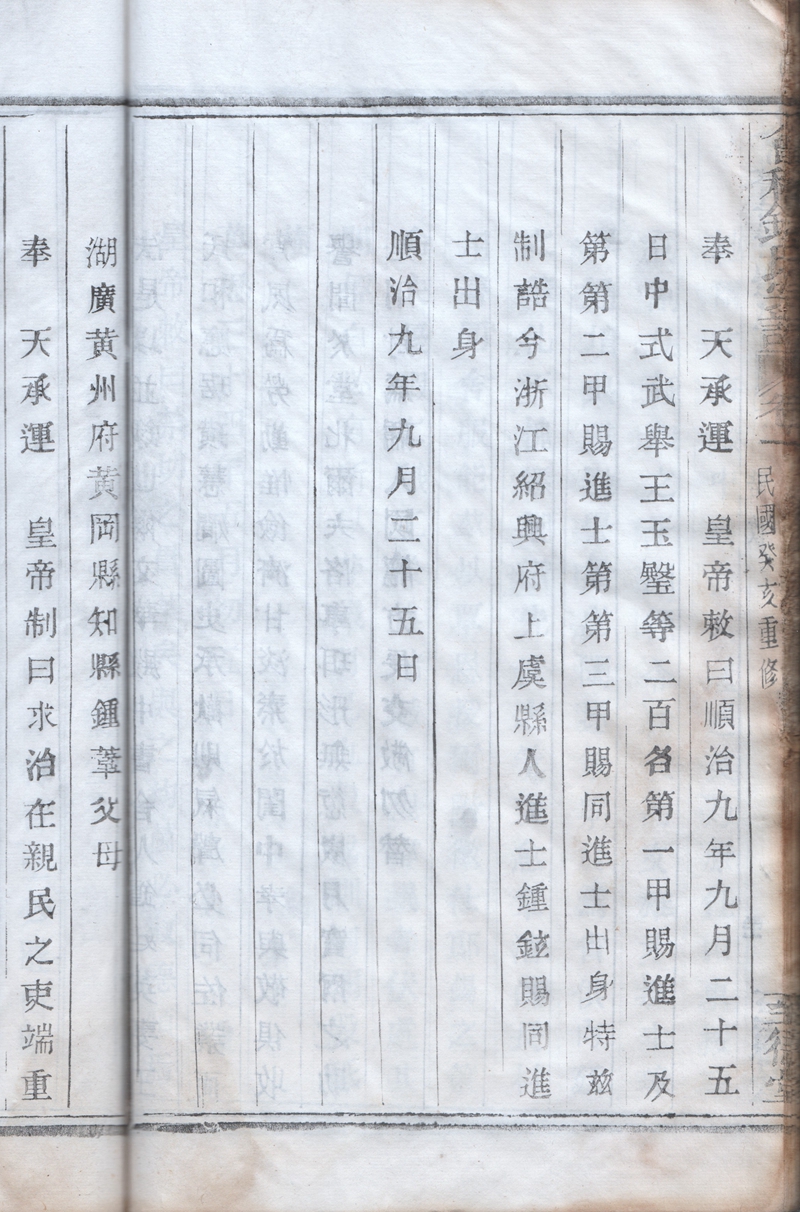 民國癸亥重修
奉　天承運　皇帝敕曰順治九年九月二十五
日中式武舉王玉璧等二百名第一甲賜進士及
第第二甲賜進士第第三甲賜同進士出身特玆
制誥今浙江紹興府上虞縣人進士鍾鉉賜同進
士出身
順治九年九月二十五日
湖廣黃州府黃岡縣知縣鍾葦父母
奉　天承運　皇帝制曰求治在親民之吏端重